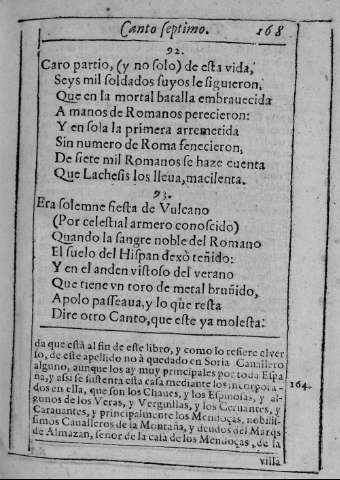 Canto septimo. 168
92.
Caro partio, (y no solo) de esta vida,
Seys mil soldados suyos le siguieron,
Que en la mortal batalla embrauecida
A manos de Romanos perecieron:
Y en sola la primera arremetida
Sin numero de Roma fenecieron,
De siete mil Romanos se haze cuenta
Que Lachesis los lleua, macilenta.
93.
Era solemne fiesta de Vulcano
(Por celestial armero conoscido)
Quando la sangre noble del Romano
El suelo del Hispan dexò teñido:
Y en el anden vistoso del verano
Que tiene vn toro de metal bruñido,
Apolo passeaua, y lo que resta
Dire otro Canto, que este ya molesta.
da que està al fin de este libro, y como lo refiere el ver
so, de este apellido no à quedado en Soria Cauallero
alguno, aunque los ay muy principales por toda Espa
ña, y assi se sustenta esta casa mediante los incorpora-
dos en ella, que son los Chaues, y los Espinosas, y al-
164.
gunos de los Veras, y Verguillas, y los Ceruantes, y
Carauantes, y principalmente los Mendoças, nobilis-
simos Caualleros de la Montaña, y deudos del Marqs
de Almazan, señor de la casa de los Mendoças, de la
villa